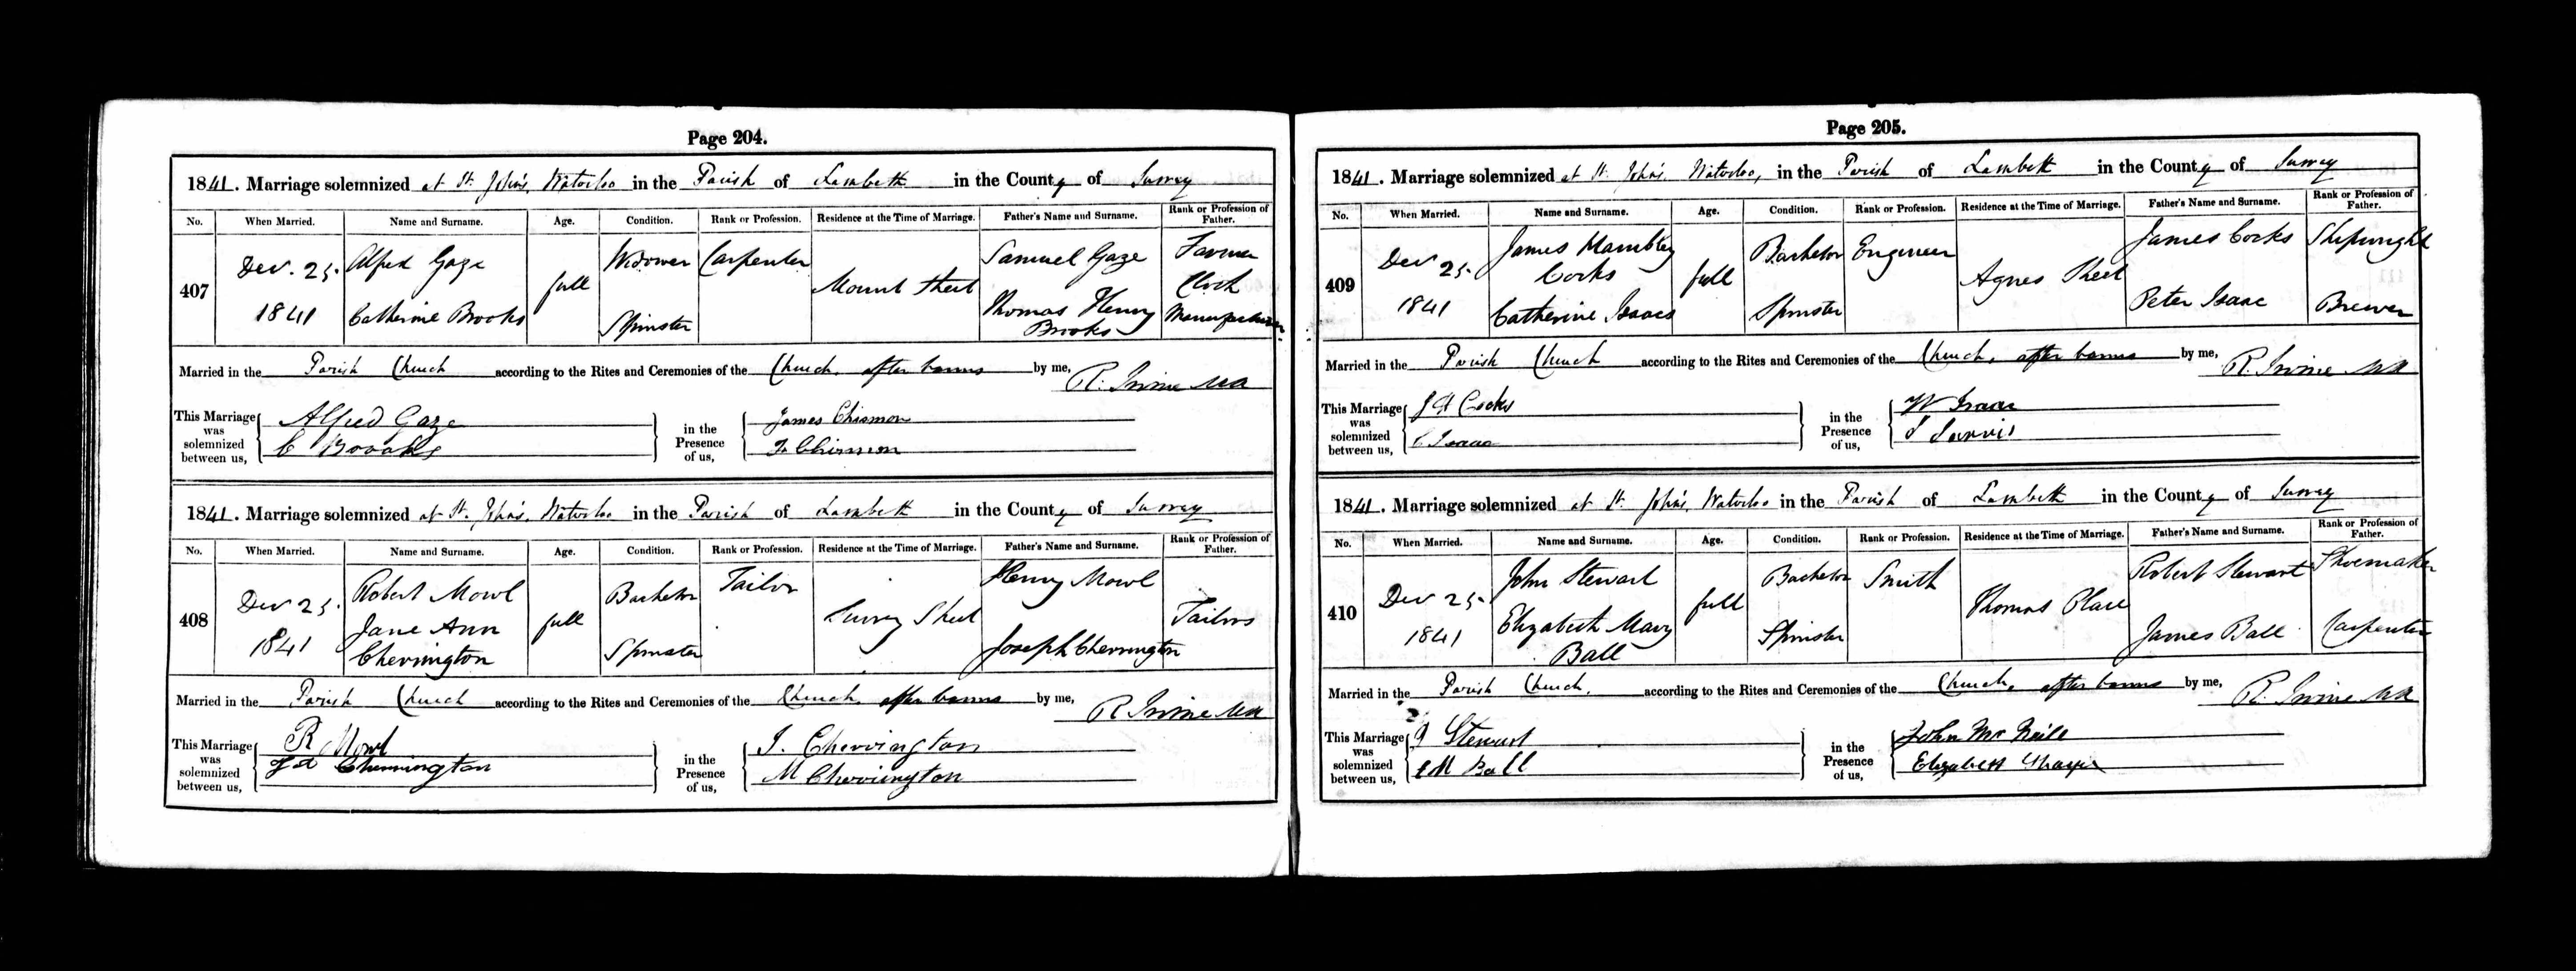 Page 204.
1841. Marriage solemnized at St. John's, Waterloo in the Parish of Lambeth in the County of Surrey
No. When Married. Name and Surname. Age. Condition. Rank or Profession. Residence at the Time of Marriage. Father's Name and Surname. Rank or Profession of Father.
407 Dec. 25. 1841 Alfred Gaze full Widower Carpenter Mount Street Samuel Gaze Farmer
Catherine Brooks Spinster Thomas Henry Brooks Clock Manufacturer
Married in the Parish Church according to the Rites and Ceremonies of the Church, after banns by me, R. Irvine MA
This Marriage was solemnized between us, Alfred Gaze in the Presence of us, James Chismon
C Brooks Chismon
1841. Marriage solemnized at St. John's, Waterloo in the Parish of Lambeth in the County of Surrey
No. When Married. Name and Surname. Age. Condition. Rank or Profession. Residence at the Time of Marriage. Father's Name and Surname. Rank or Profession of Father.
408 Dec 25. 1841 Robert Mowl full Bachelor Tailor Surrey Street Henry Mowl Tailors
Jane Ann Chervington Spinster Joseph Chervington
Married in the Parish Church according to the Rites and Ceremonies of the Church, after banns by me, R Irvine MA
This Marriage was solemnized between us, R Mowl in the Presence of us, J. Chervington
J A Chervington M Chervington
Page 205.
1841. Marriage solemnized at St. John's, Waterloo, in the Parish of Lambeth in the County of Surrey
No. When Married. Name and Surname. Age. Condition. Rank or Profession. Residence at the Time of Marriage. Father's Name and Surname. Rank or Profession of Father.
409 Dec 25. 1841 James Cocks full Bachelor Engineer Agnes Street James Cocks Shipwright
Catherine Isaacs Spinster Peter Isaac Brewer
Married in the Parish Church according to the Rites and Ceremonies of the Church, after banns by me, R. Irvine MA
This Marriage was solemnized between us, J H Cocks in the Presence of us, W Isaac
C Isaac Jarvis
1841. Marriage solemnized at St. John's, Waterloo in the Parish of Lambeth in the County of Surrey
No. When Married. Name and Surname. Age. Condition. Rank or Profession. Residence at the Time of Marriage. Father's Name and Surname. Rank or Profession of Father.
410 Dec 25. 1841 John Stewart full Bachelor Smith Thomas Place Robert Stewart Shoemaker
Elizabeth Mary Ball Spinster James Ball Carpenter
Married in the Parish Church, according to the Rites and Ceremonies of the Church, after banns by me, R. Irvine MA
This Marriage was solemnized between us, J Stewart in the Presence of us, John Mc Neill
E M Ball Elizabeth